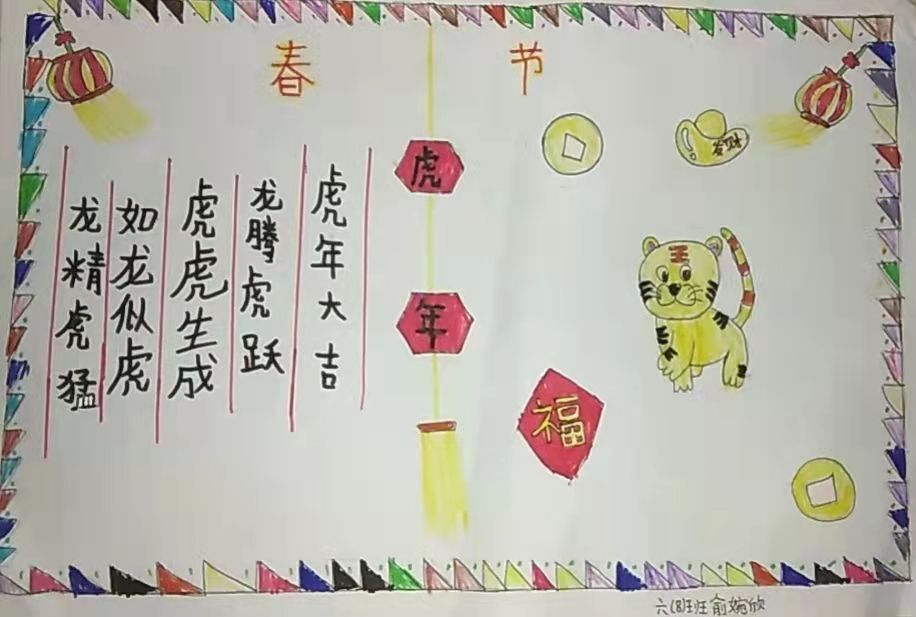 春节
虎年
发财
王
福
虎年大吉
龙腾虎跃
虎虎生成
如龙似虎
龙精虎猛
六(8)班俞婉欣